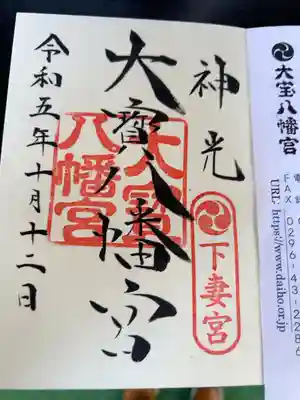 神光
下妻宮
大寳八幡宮
大寳八幡宮
令和五年十月十二日
大宝八幡宮
FAX 0296-43-2286
URL: https://www.daiho.or.jp